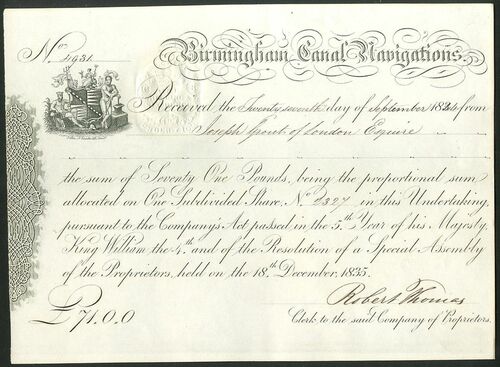 No. 4931
Birmingham Canal Navigations.
Received the Twenty seventh day of September 1844 from
Joseph of London Esquire
the sum of Seventy One Pounds, being the proportional sum
allocated on One Subdivided Share, No. 2327 in this Undertaking,
pursuant to the Company's Act passed in the 5th Year of his Majesty,
King William the 4th and of the Resolution of a Special Assembly
of the Proprietors, held on the 18th December, 1835.
Robert Thomas
£71.0.0
Clerk to the said Company of Proprietors.